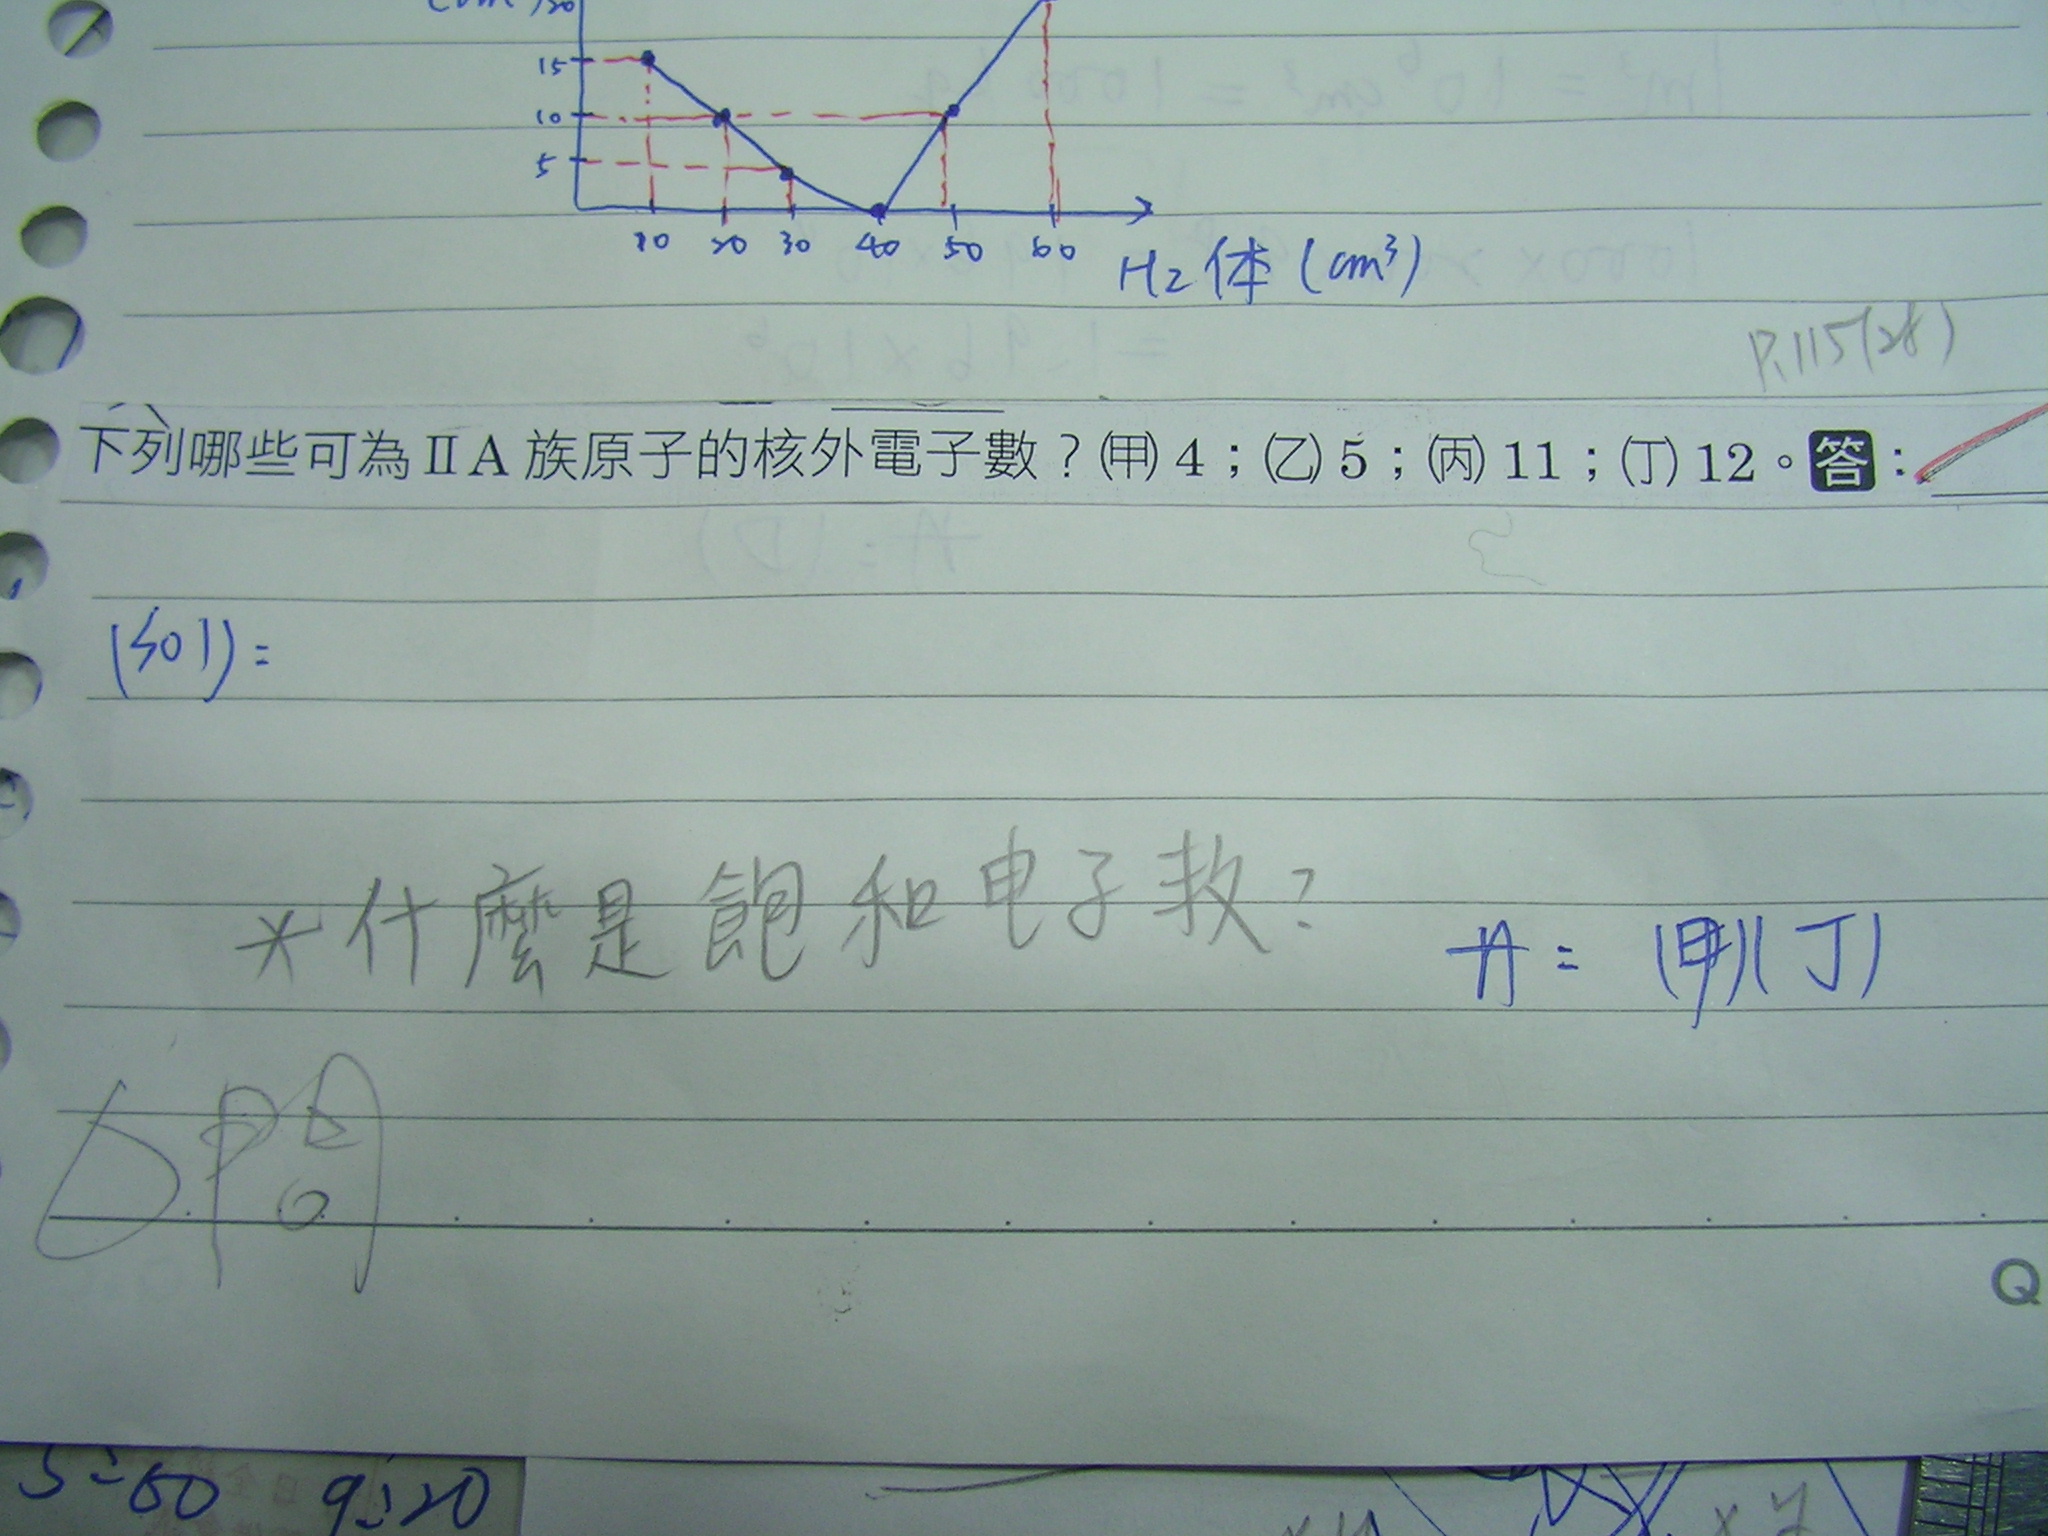 15
10
5
10 20 30 40 50 60
H₂体(cm³)
P.115(28)
下列哪些可為ⅡA族原子的核外電子數？(甲)4；(乙)5；(丙)11；(丁)12。答：
(sol)=
*什麼是飽和电子数?
A = (甲)(丁)
Q
9:20